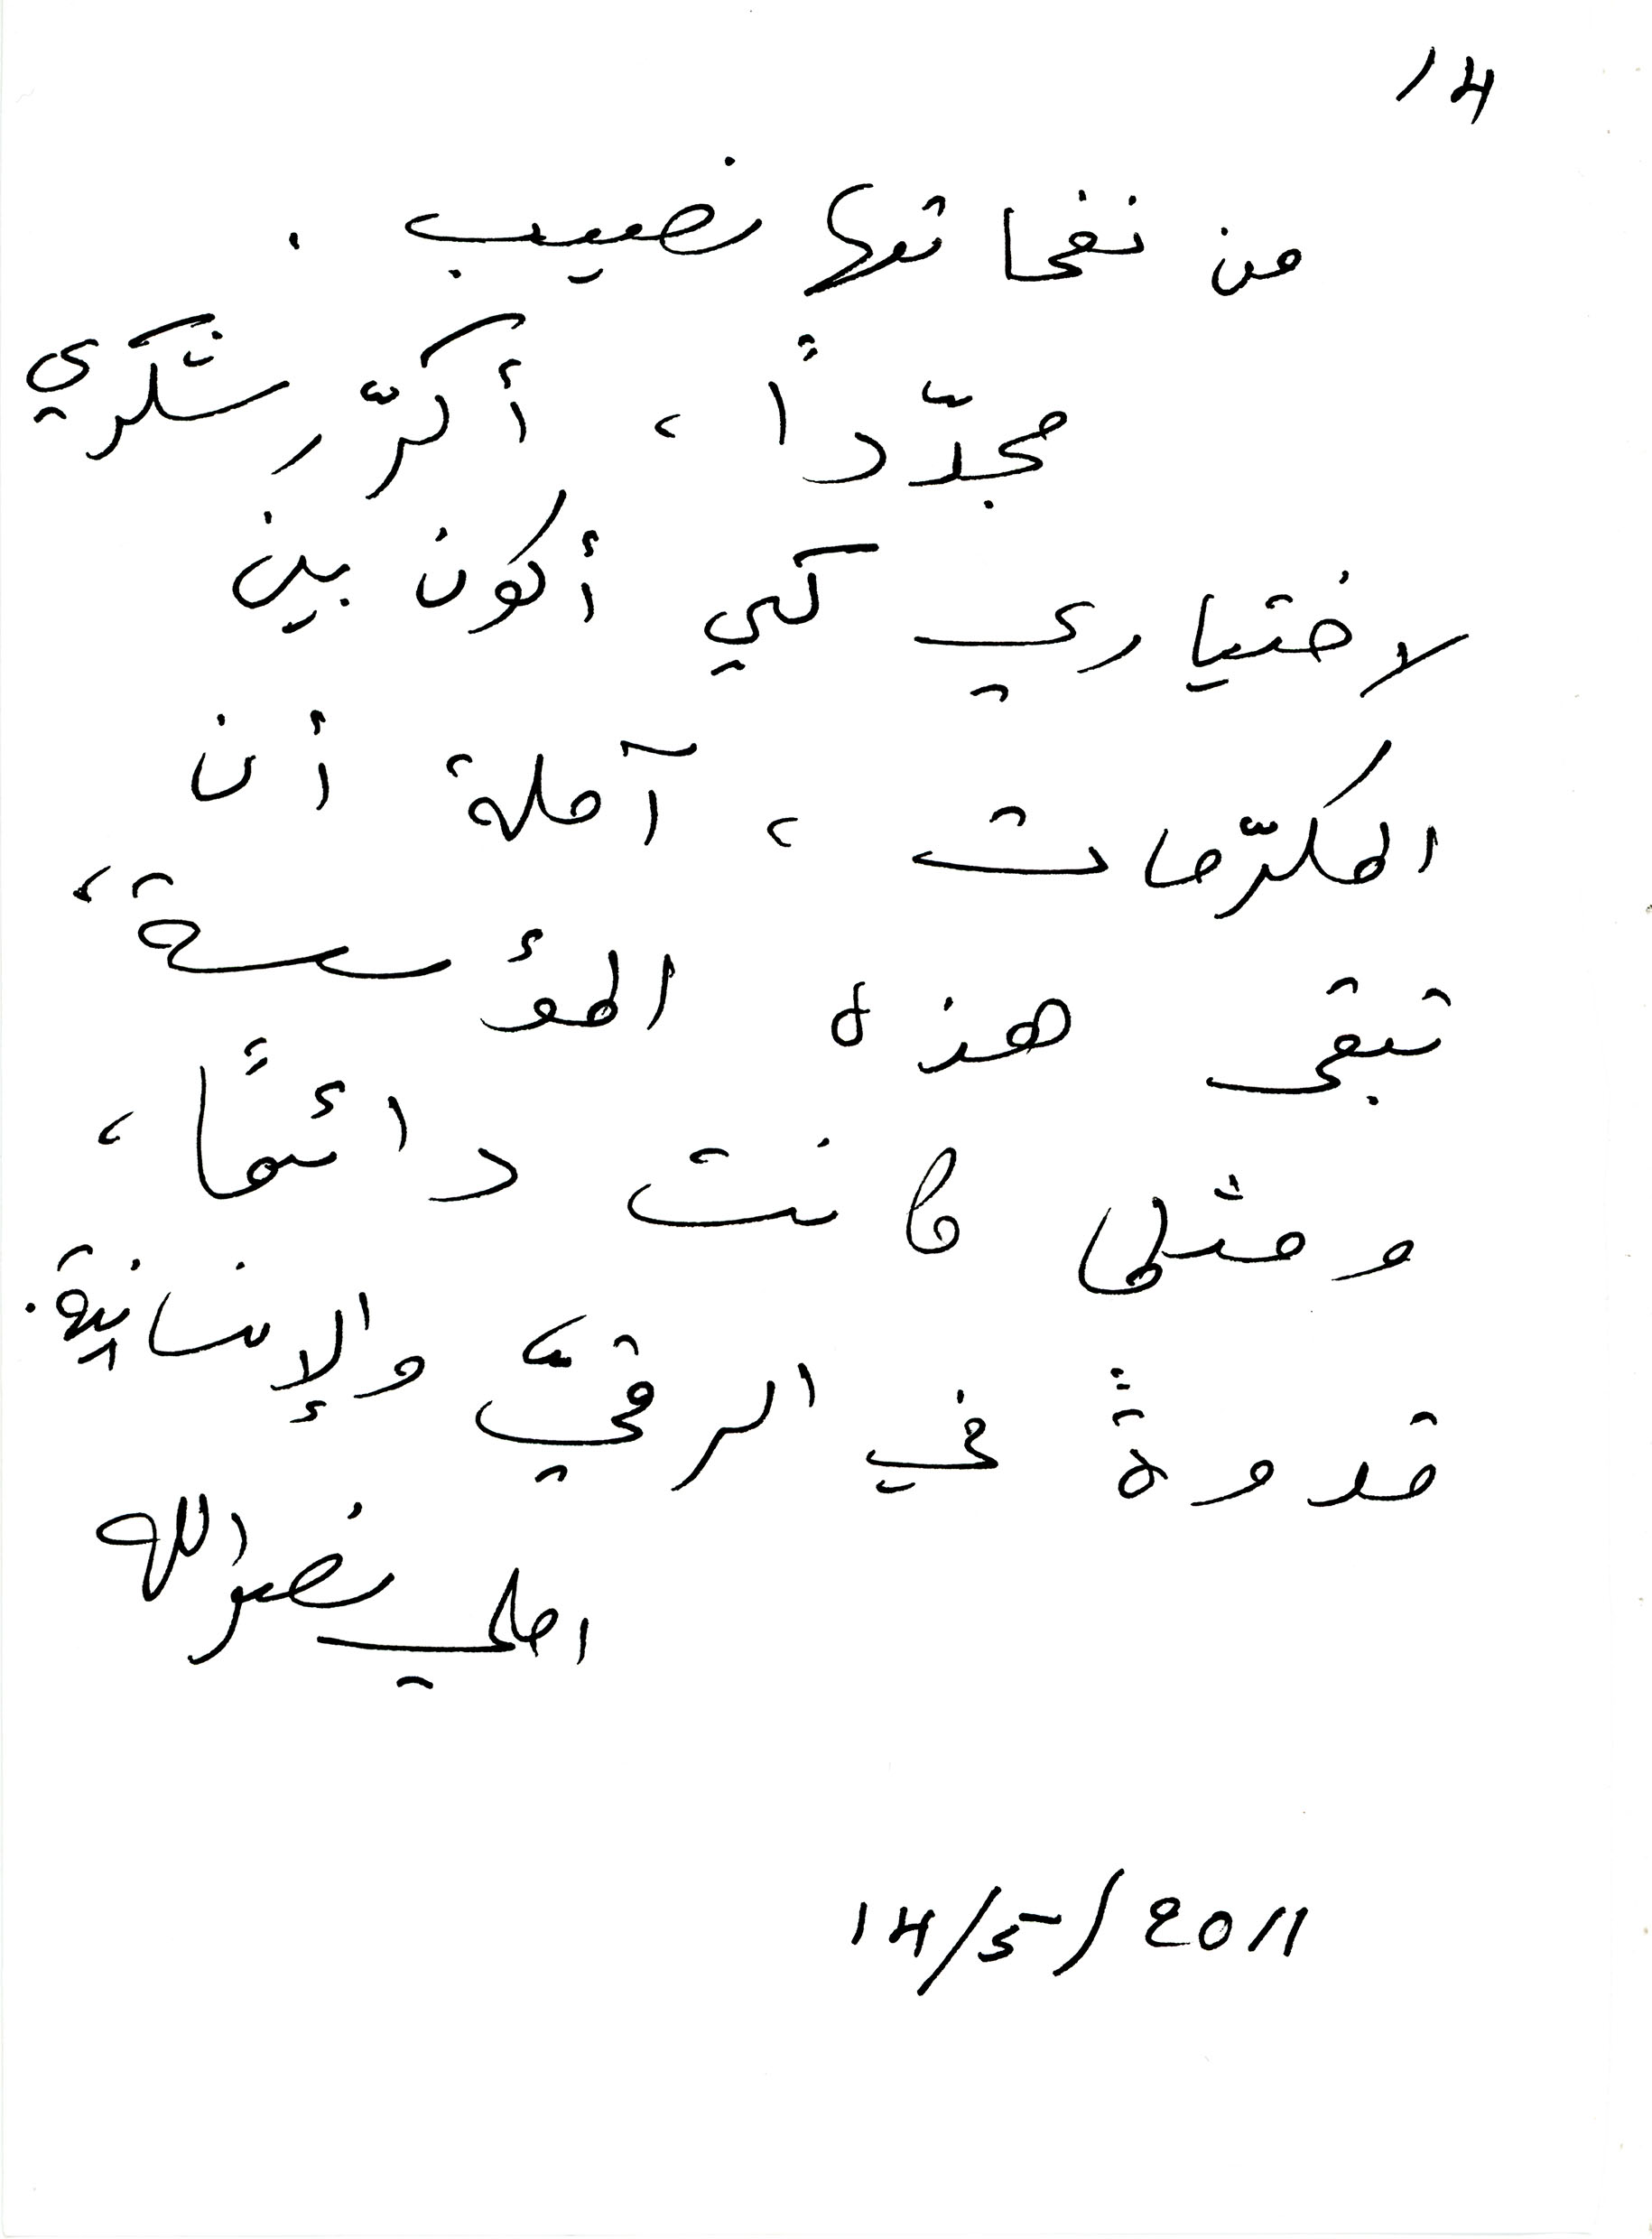 14
من نفحاتها نصيب .
مجدّدًا ، أكرّر شكري
لاختياري كي أكون بين
المكرّمات ، آملة أن
تبقى هذه المؤسسة ،
ومثلما كانت دائمًا ،
قدوةً في الرقيّ والإنسانية .
املي نصرالله
14/5/2011